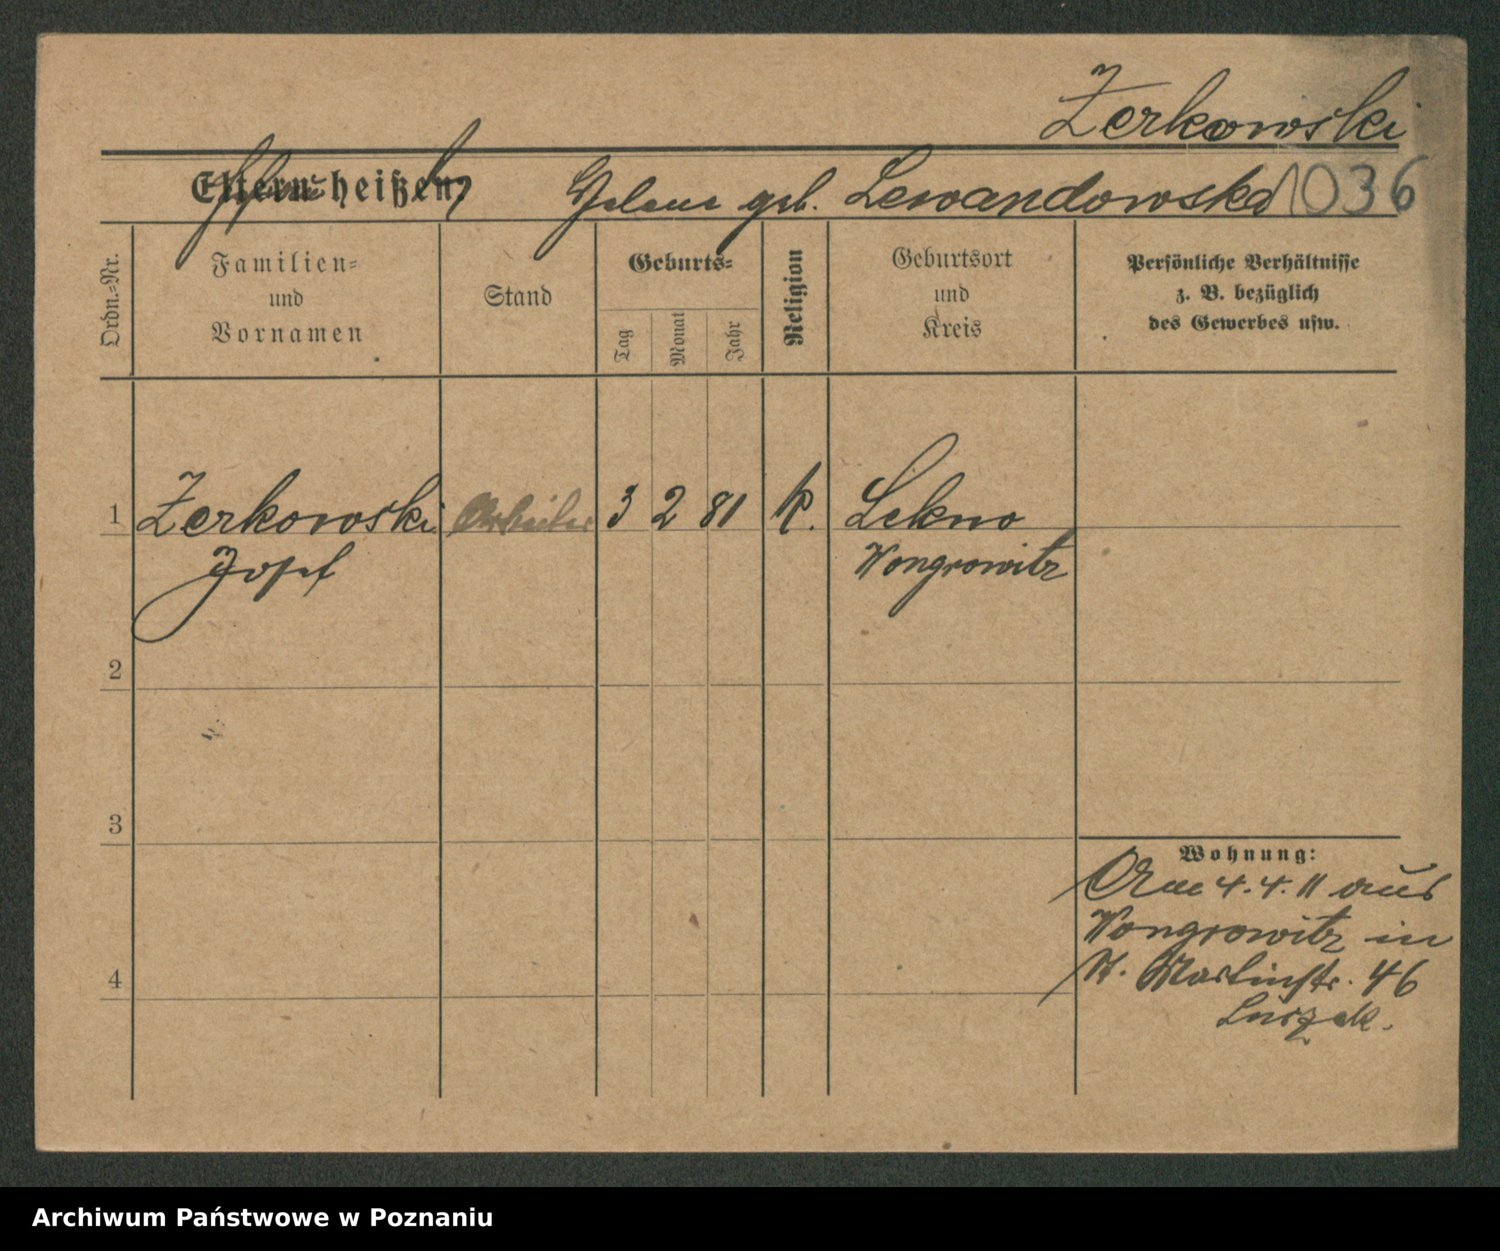 Zerkowski
Eltern heißen:
Helene geb. Lewandowska 1036
Ordn.-Nr.
Familien-
und
Vornamen
Stand
Geburts-
Tag
Monat
Jahr
Religion
Geburtsort
und
Kreis
Persönliche Verhältnisse
z. B. bezüglich
des Gewerbes usw.
1 Zerkowski Arbeiter 3 2 81 k. Lekno
Josef Wongrowitz
2
3
Wohnung:
Am 4.4.11 aus
Wongrowitz in
St. Martinstr. 46
4
Archiwum Państwowe w Poznaniu